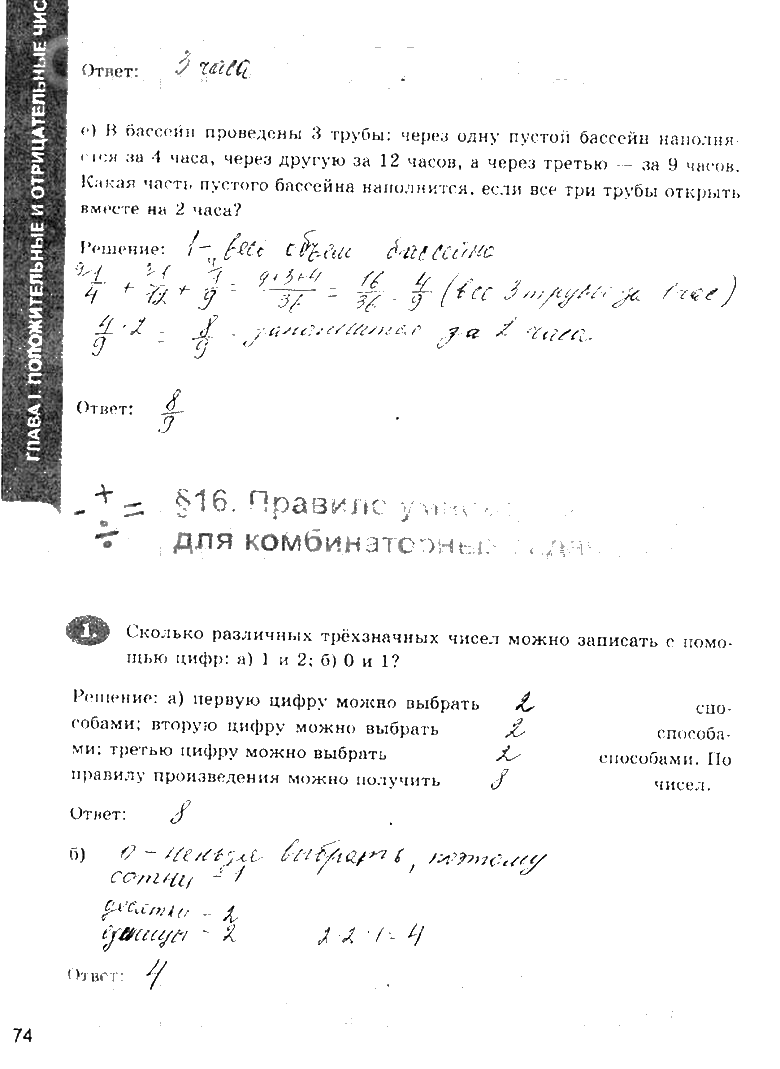 ГЛАВА I. ПОЛОЖИТЕЛЬНЫЕ И ОТРИЦАТЕЛЬНЫЕ ЧИС
Ответ: 3 часа
е) В бассейн проведены 3 трубы: через одну пустой бассейн наполня-
ется за 4 часа, через другую за 12 часов, а через третью — за 9 часов.
Какая часть пустого бассейна наполнится, если все три трубы открыть
вместе на 2 часа?
Решение: 1 - весь объем бассейна
1/4 + 1/12 + 1/9 = 9+3+4/36 = 16/36 = 4/9 (все 3 трубы за 1 час)
4/9 · 2 = 8/9 - заполнится за 2 часа.
Ответ: 8/9
- + ÷ =
§16. Правило
для комбинаторных
1. Сколько различных трёхзначных чисел можно записать с помо-
щью цифр: а) 1 и 2; б) 0 и 1?
Решение: а) первую цифру можно выбрать 2 спо-
собами; вторую цифру можно выбрать 2 способа-
ми; третью цифру можно выбрать 2 способами. По
правилу произведения можно получить 8 чисел.
Ответ: 8
б) 0 - нельзя выбрать, поэтому
сотни - 1
десятки - 2
единицы - 2 2·2·1=4
Ответ: 4
74